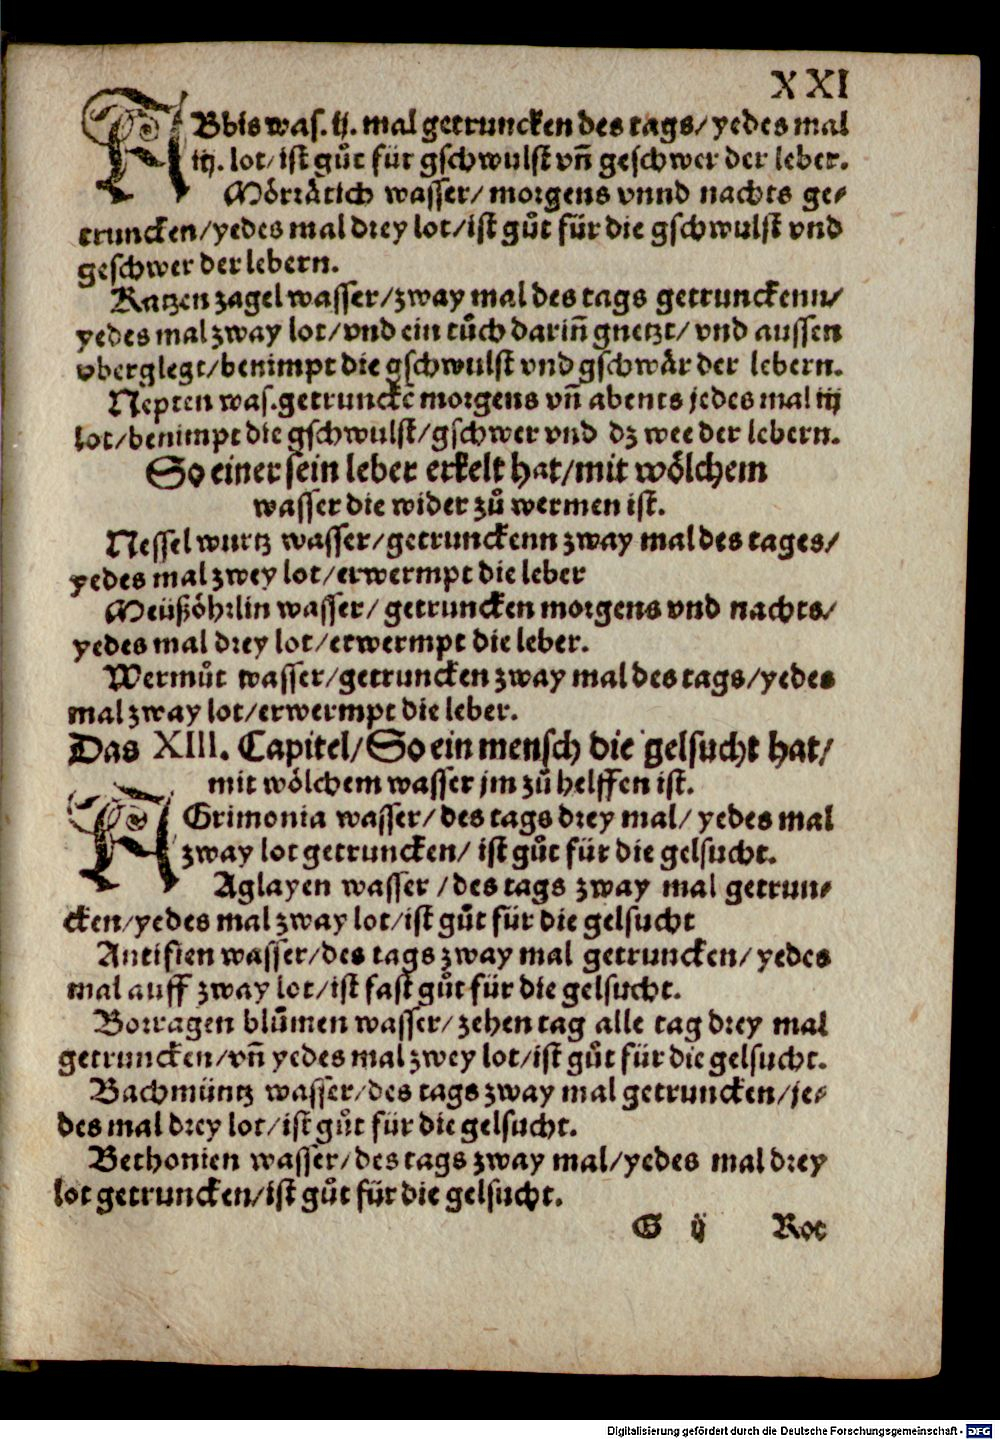 XXI
RBbis was. ij. mal getruncken des tags/ yedes mal
iij. lot/ ist gůt für gschwulst vñ geschwer der leber.
Mörrätich wasser/ morgens vnnd nachts ge-
truncken/yedes mal drey lot/ist gůt für die gschwulst vnd
geschwer der lebern.
Katzen zagel wasser/zway mal des tags getrunckenn/
yedes mal zway lot/vnd ein tůch dariñ gnetzt/ vnd aussen
vberglegt/benimpt die gschwulst vnd gschwär der lebern.
Nepten was.getrunckē morgens vñ abents jedes mal iij
lot/benimpt die gschwulst/gschwer vnd dz wee der lebern.
So einer sein leber erkelt hat/mit wölchem
wasser die wider zů wermen ist.
Nessel wurtz wasser/getrunckenn zway mal des tages/
yedes mal zwey lot/erwermpt die leber
Meüßöhrlin wasser/ getruncken morgens vnd nachts/
yedes mal drey lot/erwermpt die leber.
Wermůt wasser/getruncken zway mal des tags/yedes
mal zway lot/erwermpt die leber.
Das XIII. Capitel/So ein mensch die gelsucht hat/
mit wölchem wasser jm zů helffen ist.
AGrimonia wasser/ des tags drey mal/ yedes mal
zway lot getruncken/ ist gůt für die gelsucht.
Aglayen wasser /des tags zway mal getrun-
cken/yedes mal zway lot/ist gůt für die gelsucht
Antifien wasser/des tags zway mal getruncken/ yedes
mal auff zway lot/ist fast gůt für die gelsucht.
Borragen blůmen wasser/ zehen tag alle tag drey mal
getruncken/vñ yedes mal zwey lot/ist gůt für die gelsucht.
Bachmüntz wasser/des tags zway mal getruncken/je-
des mal drey lot/ist gůt für die gelsucht.
Bethonien wasser/des tags zway mal/yedes mal drey
lot getruncken/ist gůt für die gelsucht.
G ij Rot
Digitalisierung gefördert durch die Deutsche Forschungsgemeinschaft - DFG